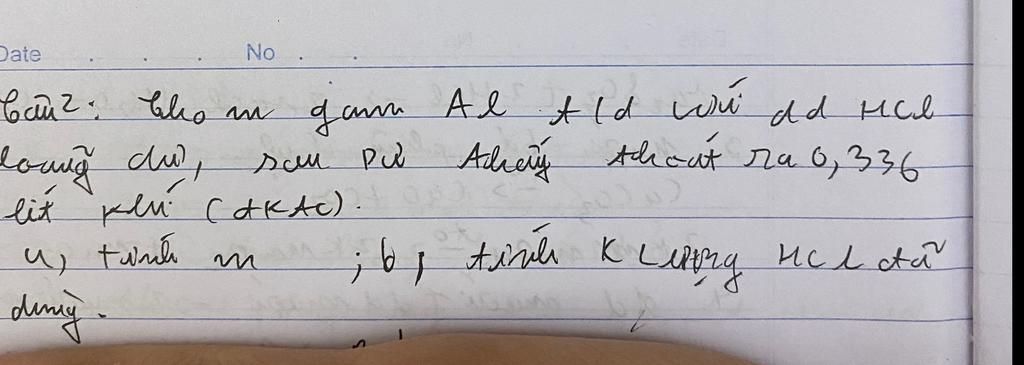 Date . . . No . . .
Câu 2: Cho m gam Al t/d với dd HCl
loãng dư, sau pứ thấy thoát ra 0,336
lít khí (đkđc).
a, tính m ; b, tính K Lượng HCl đã
dùng.